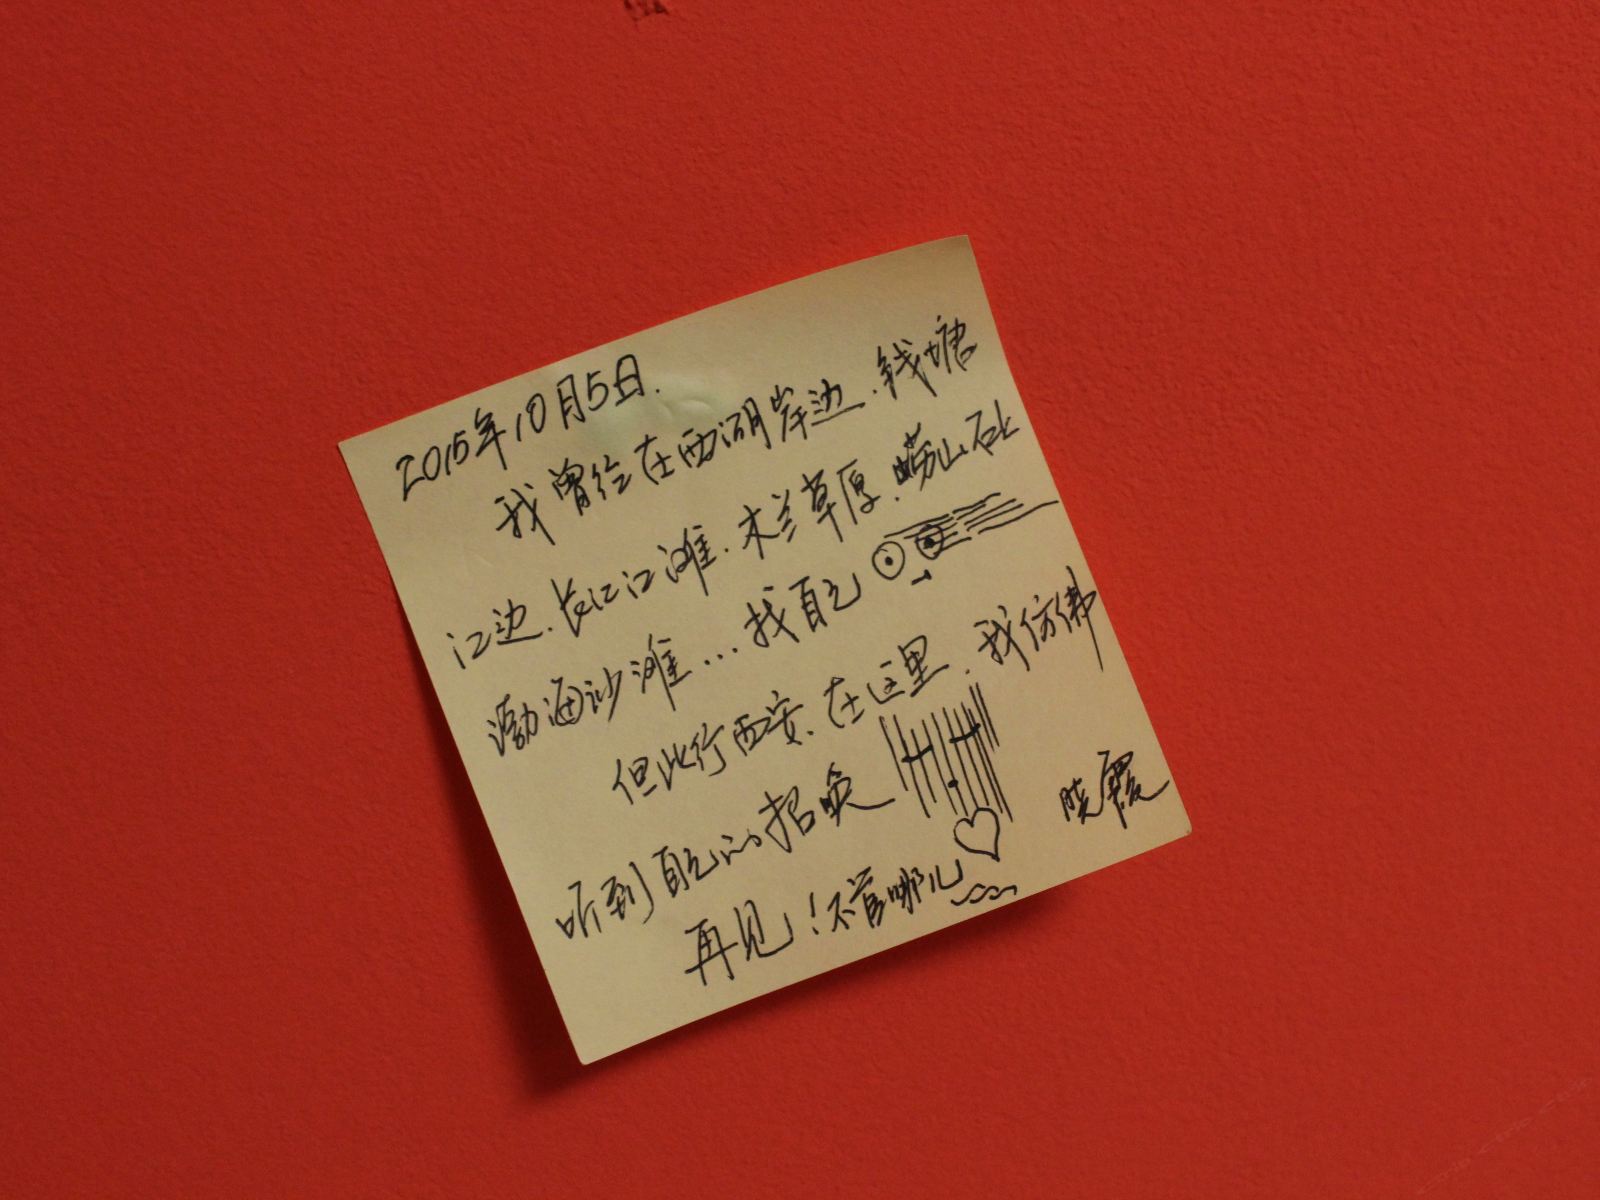 2015年10月5日.
我曾经在西湖岸边.钱塘
江边.长江江滩.木兰草原.崂山石上
渤海沙滩...找自己
但此行西安.在这里.我仿佛
听到自己的招唤
再见!不管哪儿
晓霞